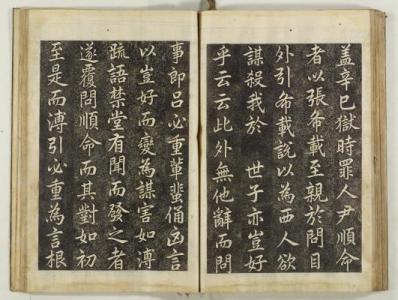 盖辛巳獄時罪人尹順命
者以張希載至親於問目
外引希載說以為西人欲
謀殺我於 世子亦豈好
乎云云此外無他辭而問
事郎吕必重輩蜚俑凶言
以豈好而變為謀害如溥
䟽語禁堂有聞而發之者
遂覆問順命而其對如初
至是而溥引必重為言根